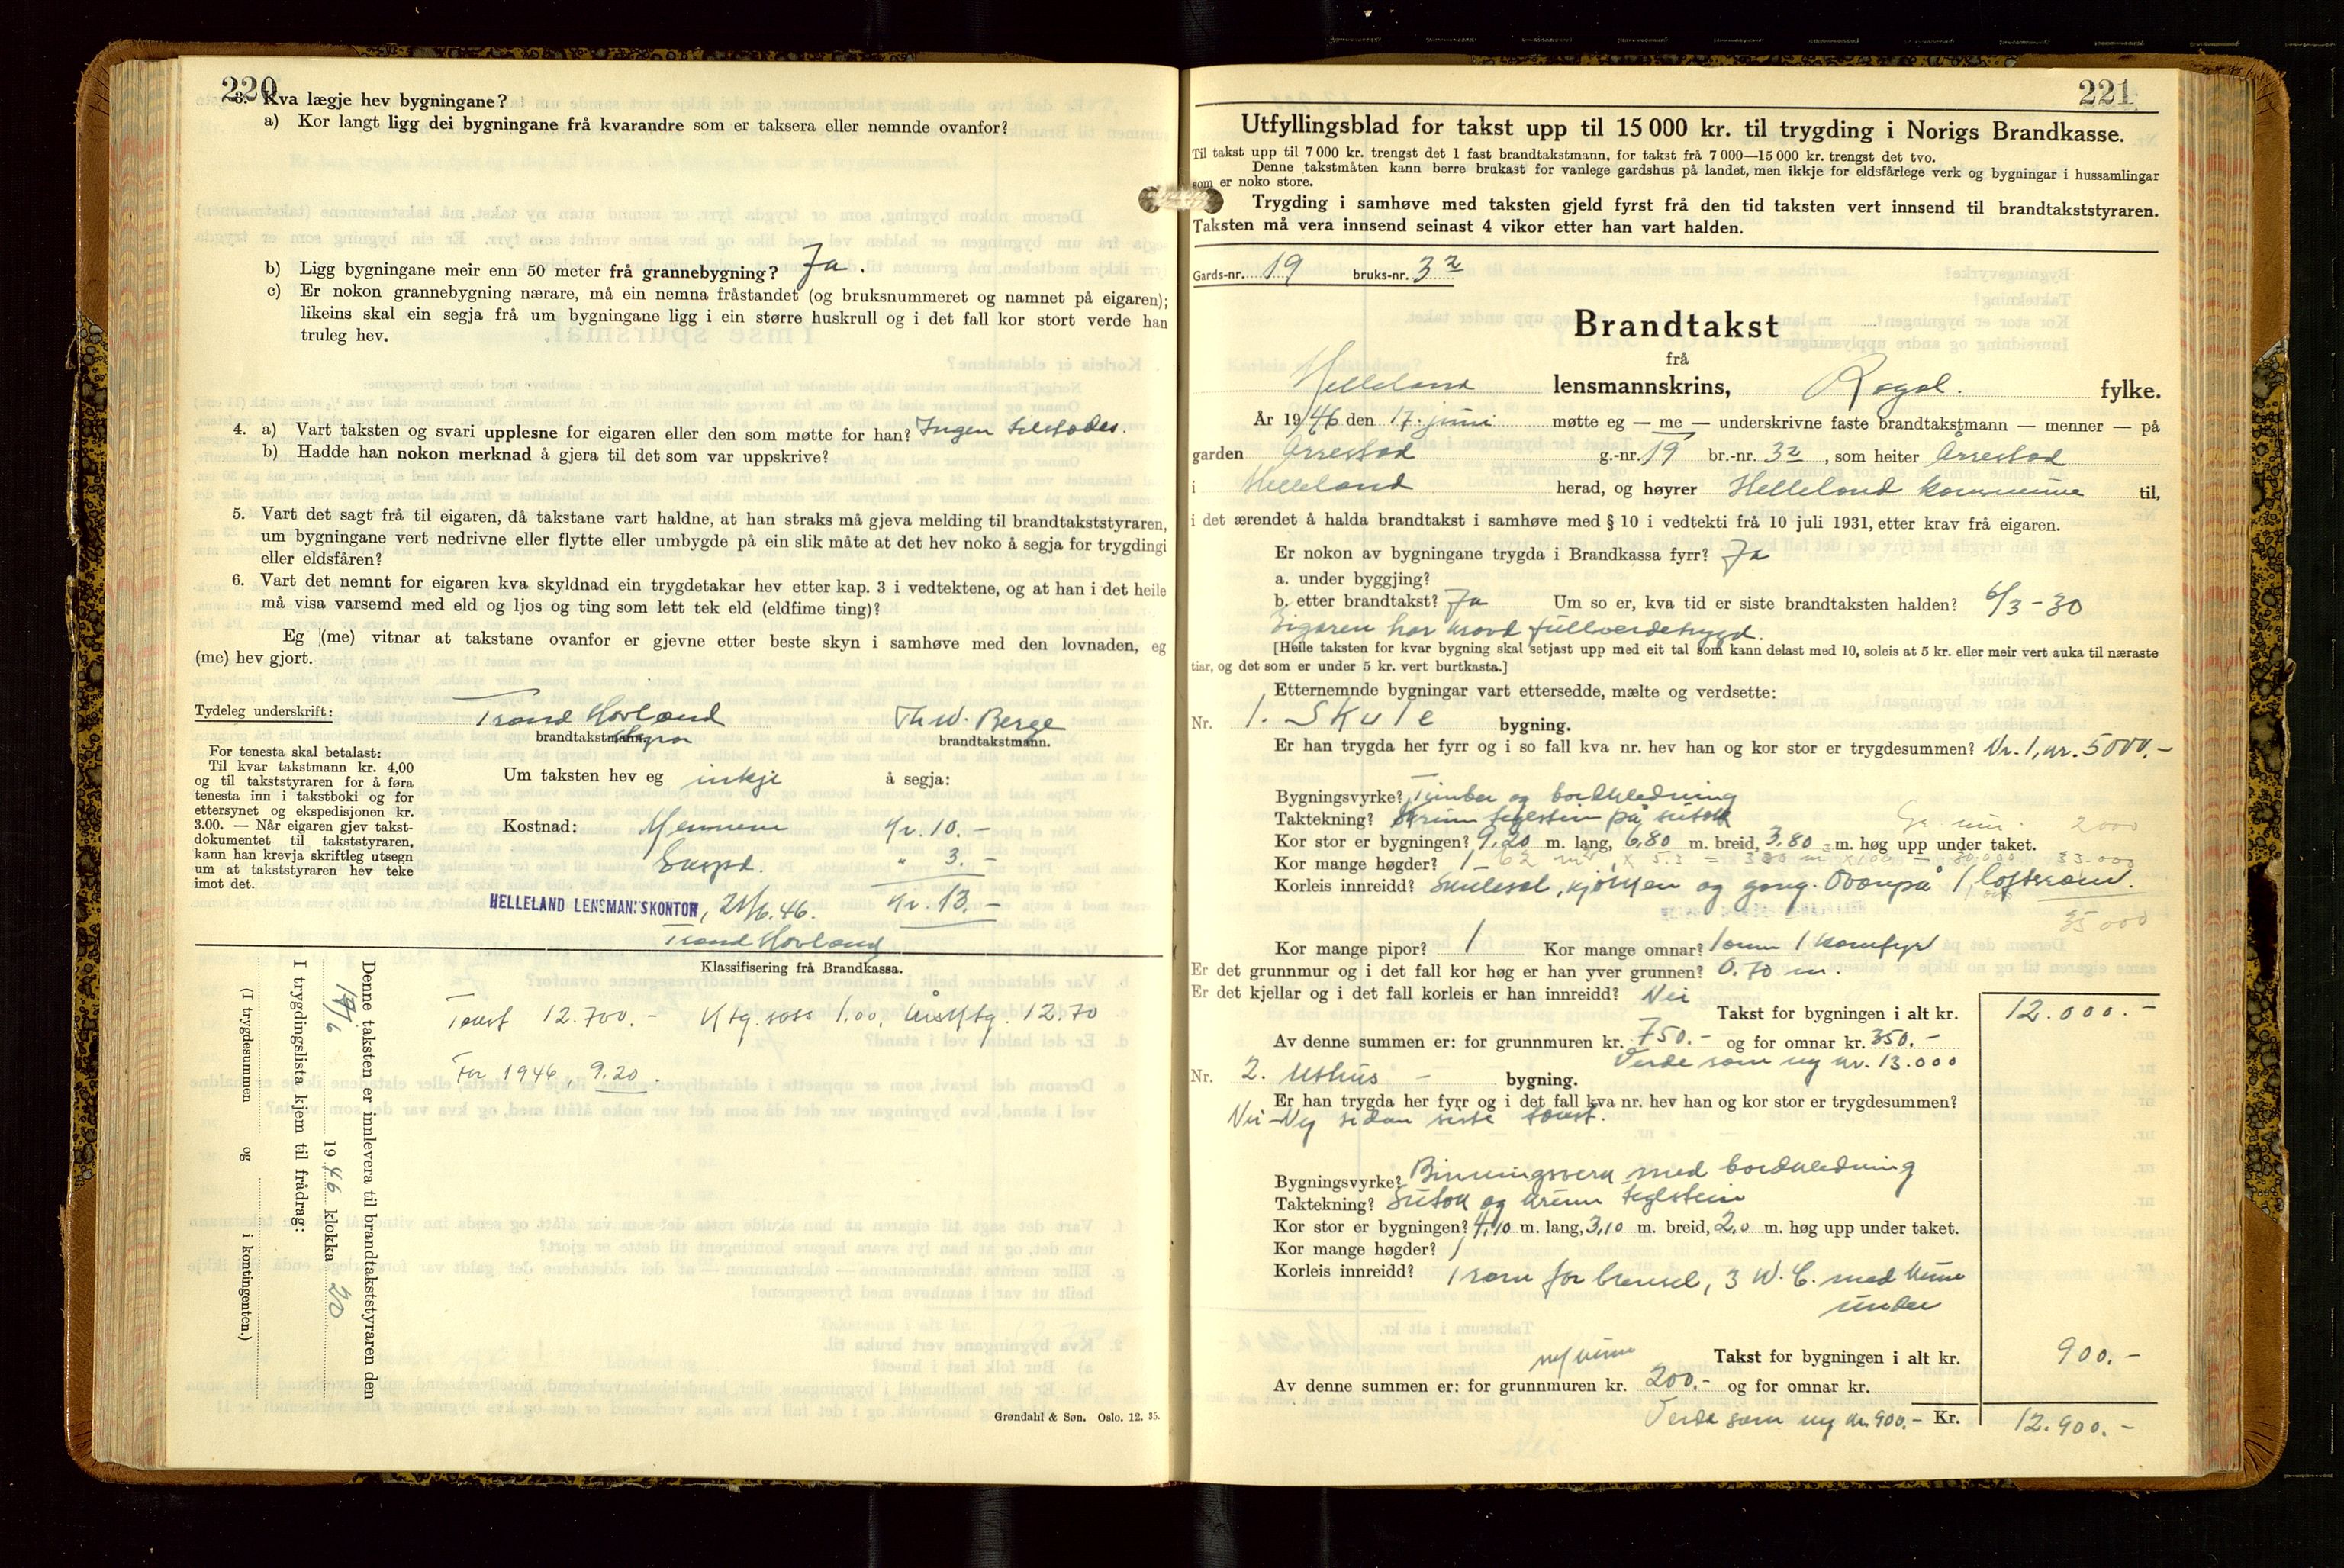 220
3. Kva lægje hev bygningane?
a) Kor langt ligg dei bygningane frå kvarandre som er taksera eller nemnde ovanfor?
b) Ligg bygningane meir enn 50 meter frå grannebygning? Ja.
c) Er nokon grannebygning nærare, må ein nemna fråstandet (og bruksnummeret og namnet på eigaren);
likeins skal ein segja frå um bygningane ligg i ein større huskrull og i det fall kor stort verde han
truleg hev.
4. a) Vart taksten og svari upplesne for eigaren eller den som møtte for han? Ingen tilstades.
b) Hadde han nokon merknad å gjera til det som var uppskrive?
5. Vart det sagt frå til eigaren, då takstane vart haldne, at han straks må gjeva melding til brandtakststyraren,
um bygningane vert nedrivne eller flytte eller umbygde på ein slik måte at det hev noko å segja for trygdingi
eller eldsfåren?
6. Vart det nemnt for eigaren kva skyldnad ein trygdetakar hev etter kap. 3 i vedtektene, og at han i det heile
må visa varsemd med eld og ljos og ting som lett tek eld (eldfime ting)?
Eg (me) vitnar at takstane ovanfor er gjevne etter beste skyn i samhøve med den lovnaden, eg
(me) hev gjort.
Tydeleg underskrift: Trond Hovland Th W. Berge
brandtakstmann. brandtakstmann.
For tenesta skal betalast:
Til kvar takstmann kr. 4,00
og til takststyraren for å føra
tenesta inn i takstboki og for
ettersynet og ekspedisjonen kr.
3.00. — Når eigaren gjev takst-
dokumentet til takststyraren,
kann han krevja skriftleg utsegn
um at takststyraren hev teke
imot det.
Um taksten hev eg inkje å segja:
Kostnad: Mennene Kr. 10.-
" 3.-
Kr. 13.-
HELLELAND LENSMANNSKONTOR, 21/6.46.
Trond Hovland
Klassifisering frå Brandkassa.
Takst 12.700.- Ktg. sats 1.00. Årsktg. 12.70
For 1946, 9.20.
Denne taksten er innlevera til brandtakststyraren den
19/6 1946 klokka 20
I trygdingslista kjem til frådrag:
(I trygdesummen og i kontingenten.)
Grøndahl & Søn. Oslo. 12. 35.
221
Utfyllingsblad for takst upp til 15 000 kr. til trygding i Norigs Brandkasse.
Til takst upp til 7 000 kr. trengst det 1 fast brandtakstmann, for takst frå 7 000—15 000 kr. trengst det tvo.
Denne takstmåten kann berre brukast for vanlege gardshus på landet, men ikkje for eldsfårlege verk og bygningar i hussamlingar
som er noko store.
Trygding i samhøve med taksten gjeld fyrst frå den tid taksten vert innsend til brandtakststyraren.
Taksten må vera innsend seinast 4 vikor etter han vart halden.
Gards-nr. 19 bruks-nr. 32
Brandtakst
frå
Helleland lensmannskrins, Rogal. fylke.
År 1946 den 17. juni møtte eg — me — underskrivne faste brandtakstmann — menner — på
garden Årrestad g.-nr. 19 br.-nr. 32, som heiter Årrestad
i Helleland herad, og høyrer Helleland kommune til,
i det ærendet å halda brandtakst i samhøve med § 10 i vedtekti frå 10 juli 1931, etter krav frå eigaren.
Er nokon av bygningane trygda i Brandkassa fyrr? Ja
a. under byggjing?
b. etter brandtakst? Ja Um so er, kva tid er siste brandtaksten halden? 6/3-30
Eigaren har kravd fullverdetrygd.
[Heile taksten for kvar bygning skal setjast upp med eit tal som kann delast med 10, soleis at 5 kr. eller meir vert auka til næraste
tiar, og det som er under 5 kr. vert burtkasta.]
Etternemnde bygningar vart ettersedde, mælte og verdsette:
Nr. 1. Skule bygning.
Er han trygda her fyrr og i so fall kva nr. hev han og kor stor er trygdesummen? Nr. 1, kr. 5000.-
Bygningsvyrke? Timber og bordkledning
Taktekning? Krum teglstein på sutak
2000
Kor stor er bygningen? 9,20 m. lang, 6,80 m. breid, 3,80 m. høg upp under taket.
Kor mange høgder? 1 33.000
Korleis innreidd? Skulesal, kjøkken og gang. Ovanpå 1 loftsrom.
35 000
Kor mange pipor? 1 Kor mange omnar? 1 omn 1 komfyr
Er det grunnmur og i det fall kor høg er han yver grunnen? 0.70 m.
Er det kjellar og i det fall korleis er han innreidd? Nei
Takst for bygningen i alt kr. 12.000.-
Av denne summen er: for grunnmuren kr. 750.- og for omnar kr. 350.-
Verde som ny kr. 13.000
Nr. 2. Uthus - bygning.
Er han trygda her fyrr og i det fall kva nr. hev han og kor stor er trygdesummen?
Nei - Ny sidan siste takst.
Bygningsvyrke? Binningsverk med bordkledning
Taktekning? Sutak og krum teglstein
Kor stor er bygningen? 4,10 m. lang, 3,10 m. breid, 2,0 m. høg upp under taket.
Kor mange høgder? 1
Korleis innreidd? 1 rom for brensel, 3 W.C. med kum
under
m/kum Takst for bygningen i alt kr. 900.-
Av denne summen er: for grunnmuren kr. 200.- og for omnar kr.
Verde som ny kr. 900.- Kr. 12.900.-